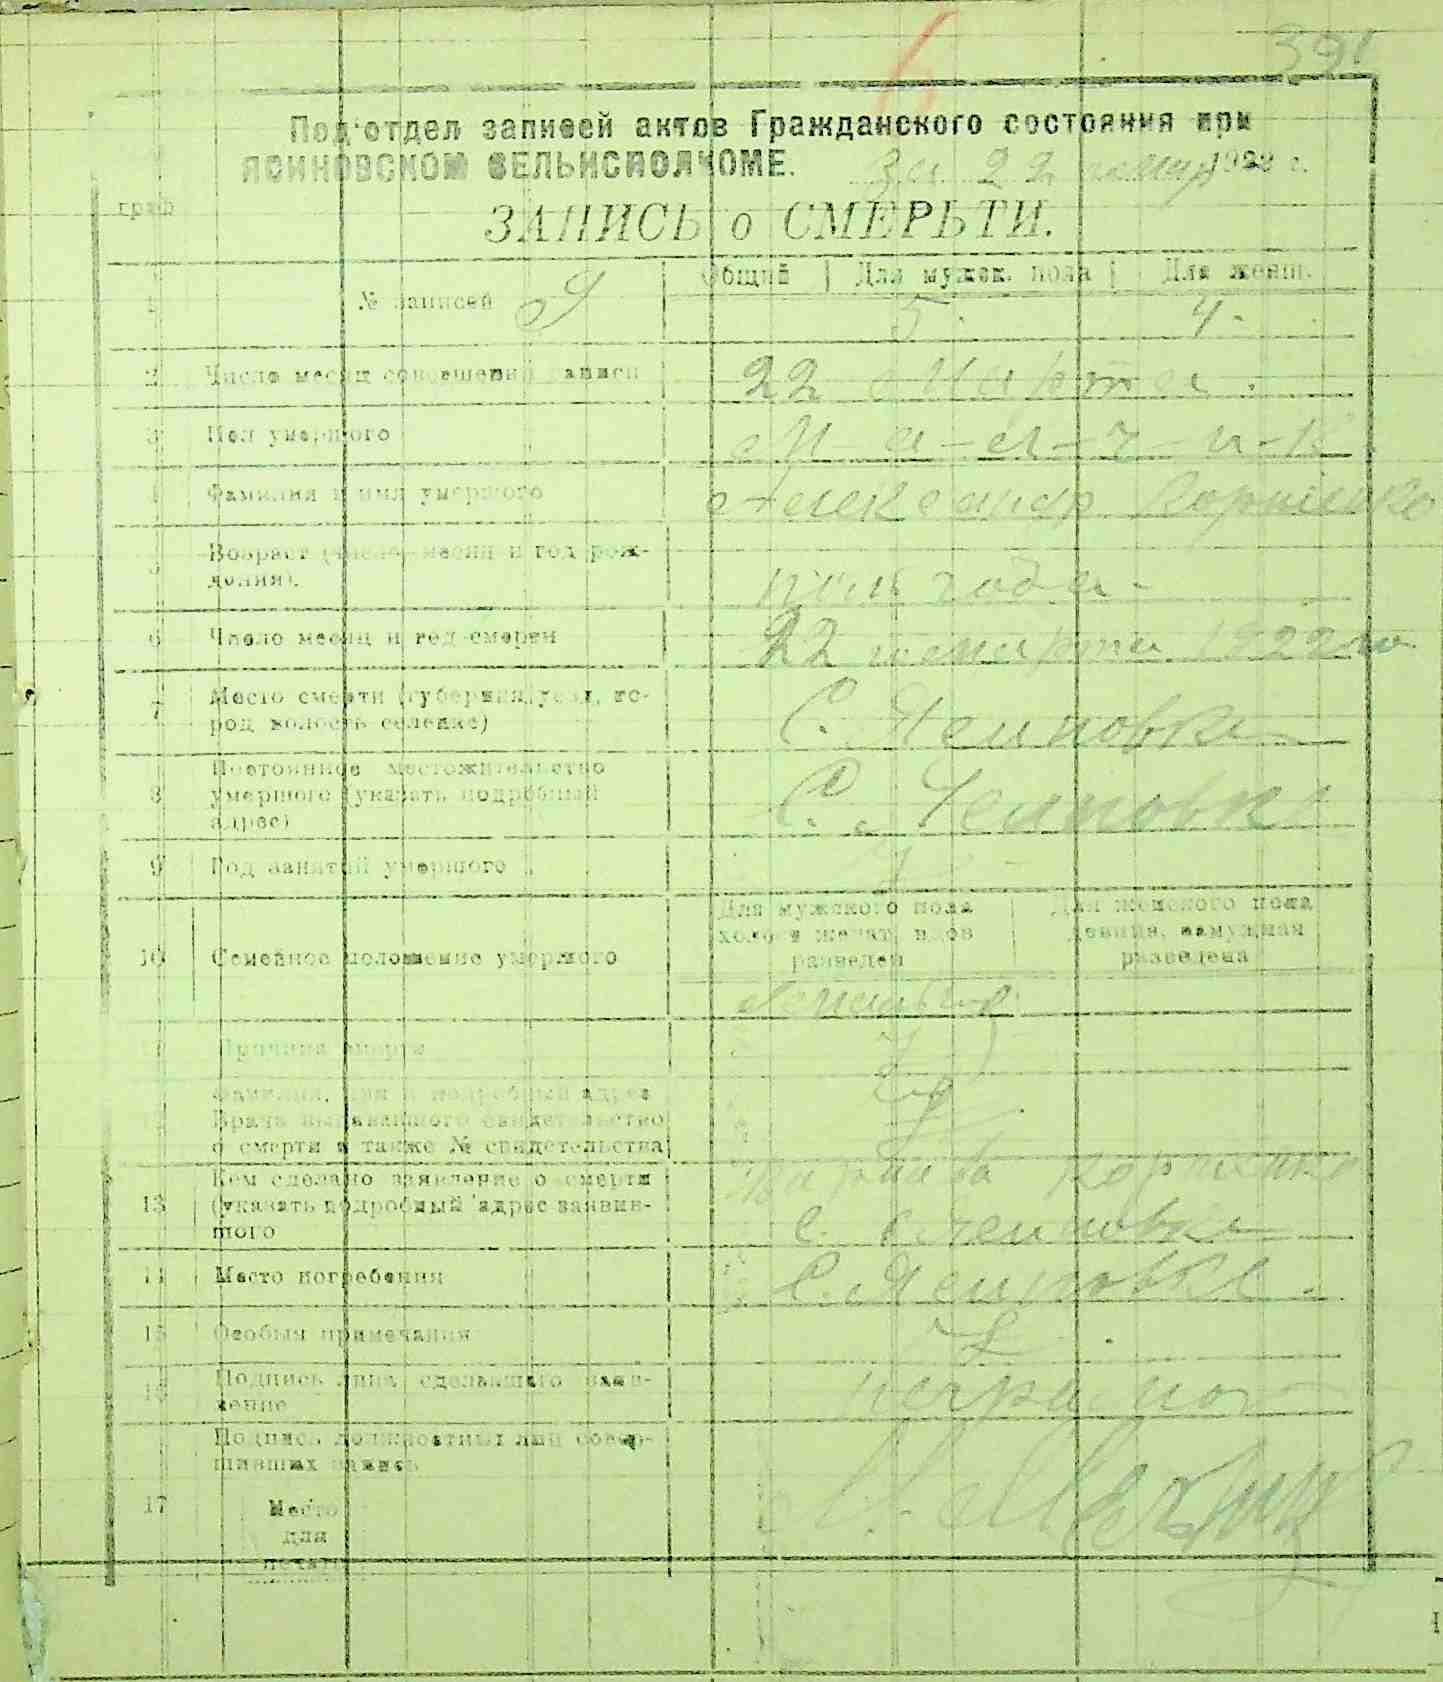 391
6
Под'отдел записей актов Гражданского состояния при
ЯСИНОВСКОМ СЕЛЬИСПОЛКОМЕ. За 22 марта 1922 г.
граф
ЗАПИСЬ о СМЕРЬТИ.
1 № записей 9 Общий Для мужск. пола Для женщ.
5. 4.
2 Число месяц совершений записи 22 Марта.
3 Пол умершого М-а-л-ч-и-к.
4 Фамилия и имя умершого Александр Корниенко
5 Возраст (число месяц и год рож-
дения). пол года
6 Число месяц и год смерти 22 марта 1922 го
7 Место смерти (губерния, уезд, го-
род волость селение) С. Ясиновке
8 Постоянное местожительство
умершого (указать подробный
адрес) С. Ясиновке
9 Год занятий умершого
10 Семейное положение умершого
Для мужского пола
холост женат, вдов
разведен
Для женского пола
девица, замужная
разведена
11 Причина смерти
12 Фамилия, имя и подробный адрес
Врача выдавшого свидетельство
о смерти а также № свидетельства
13 Кем сделано заявление о смерти
(указать подробный адрес заявив-
шого Корниенко
с. Ясиновке
14 Место погребения С. Ясиновке.
15 Особыя примечания
16 Подпись лица сделавшаго заяв-
ление неграмот
Подпись должностных лиц совер-
шивших запись
17 Место
для
печати